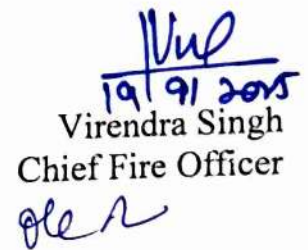 19/9/2025
Virendra Singh
Chief Fire Officer